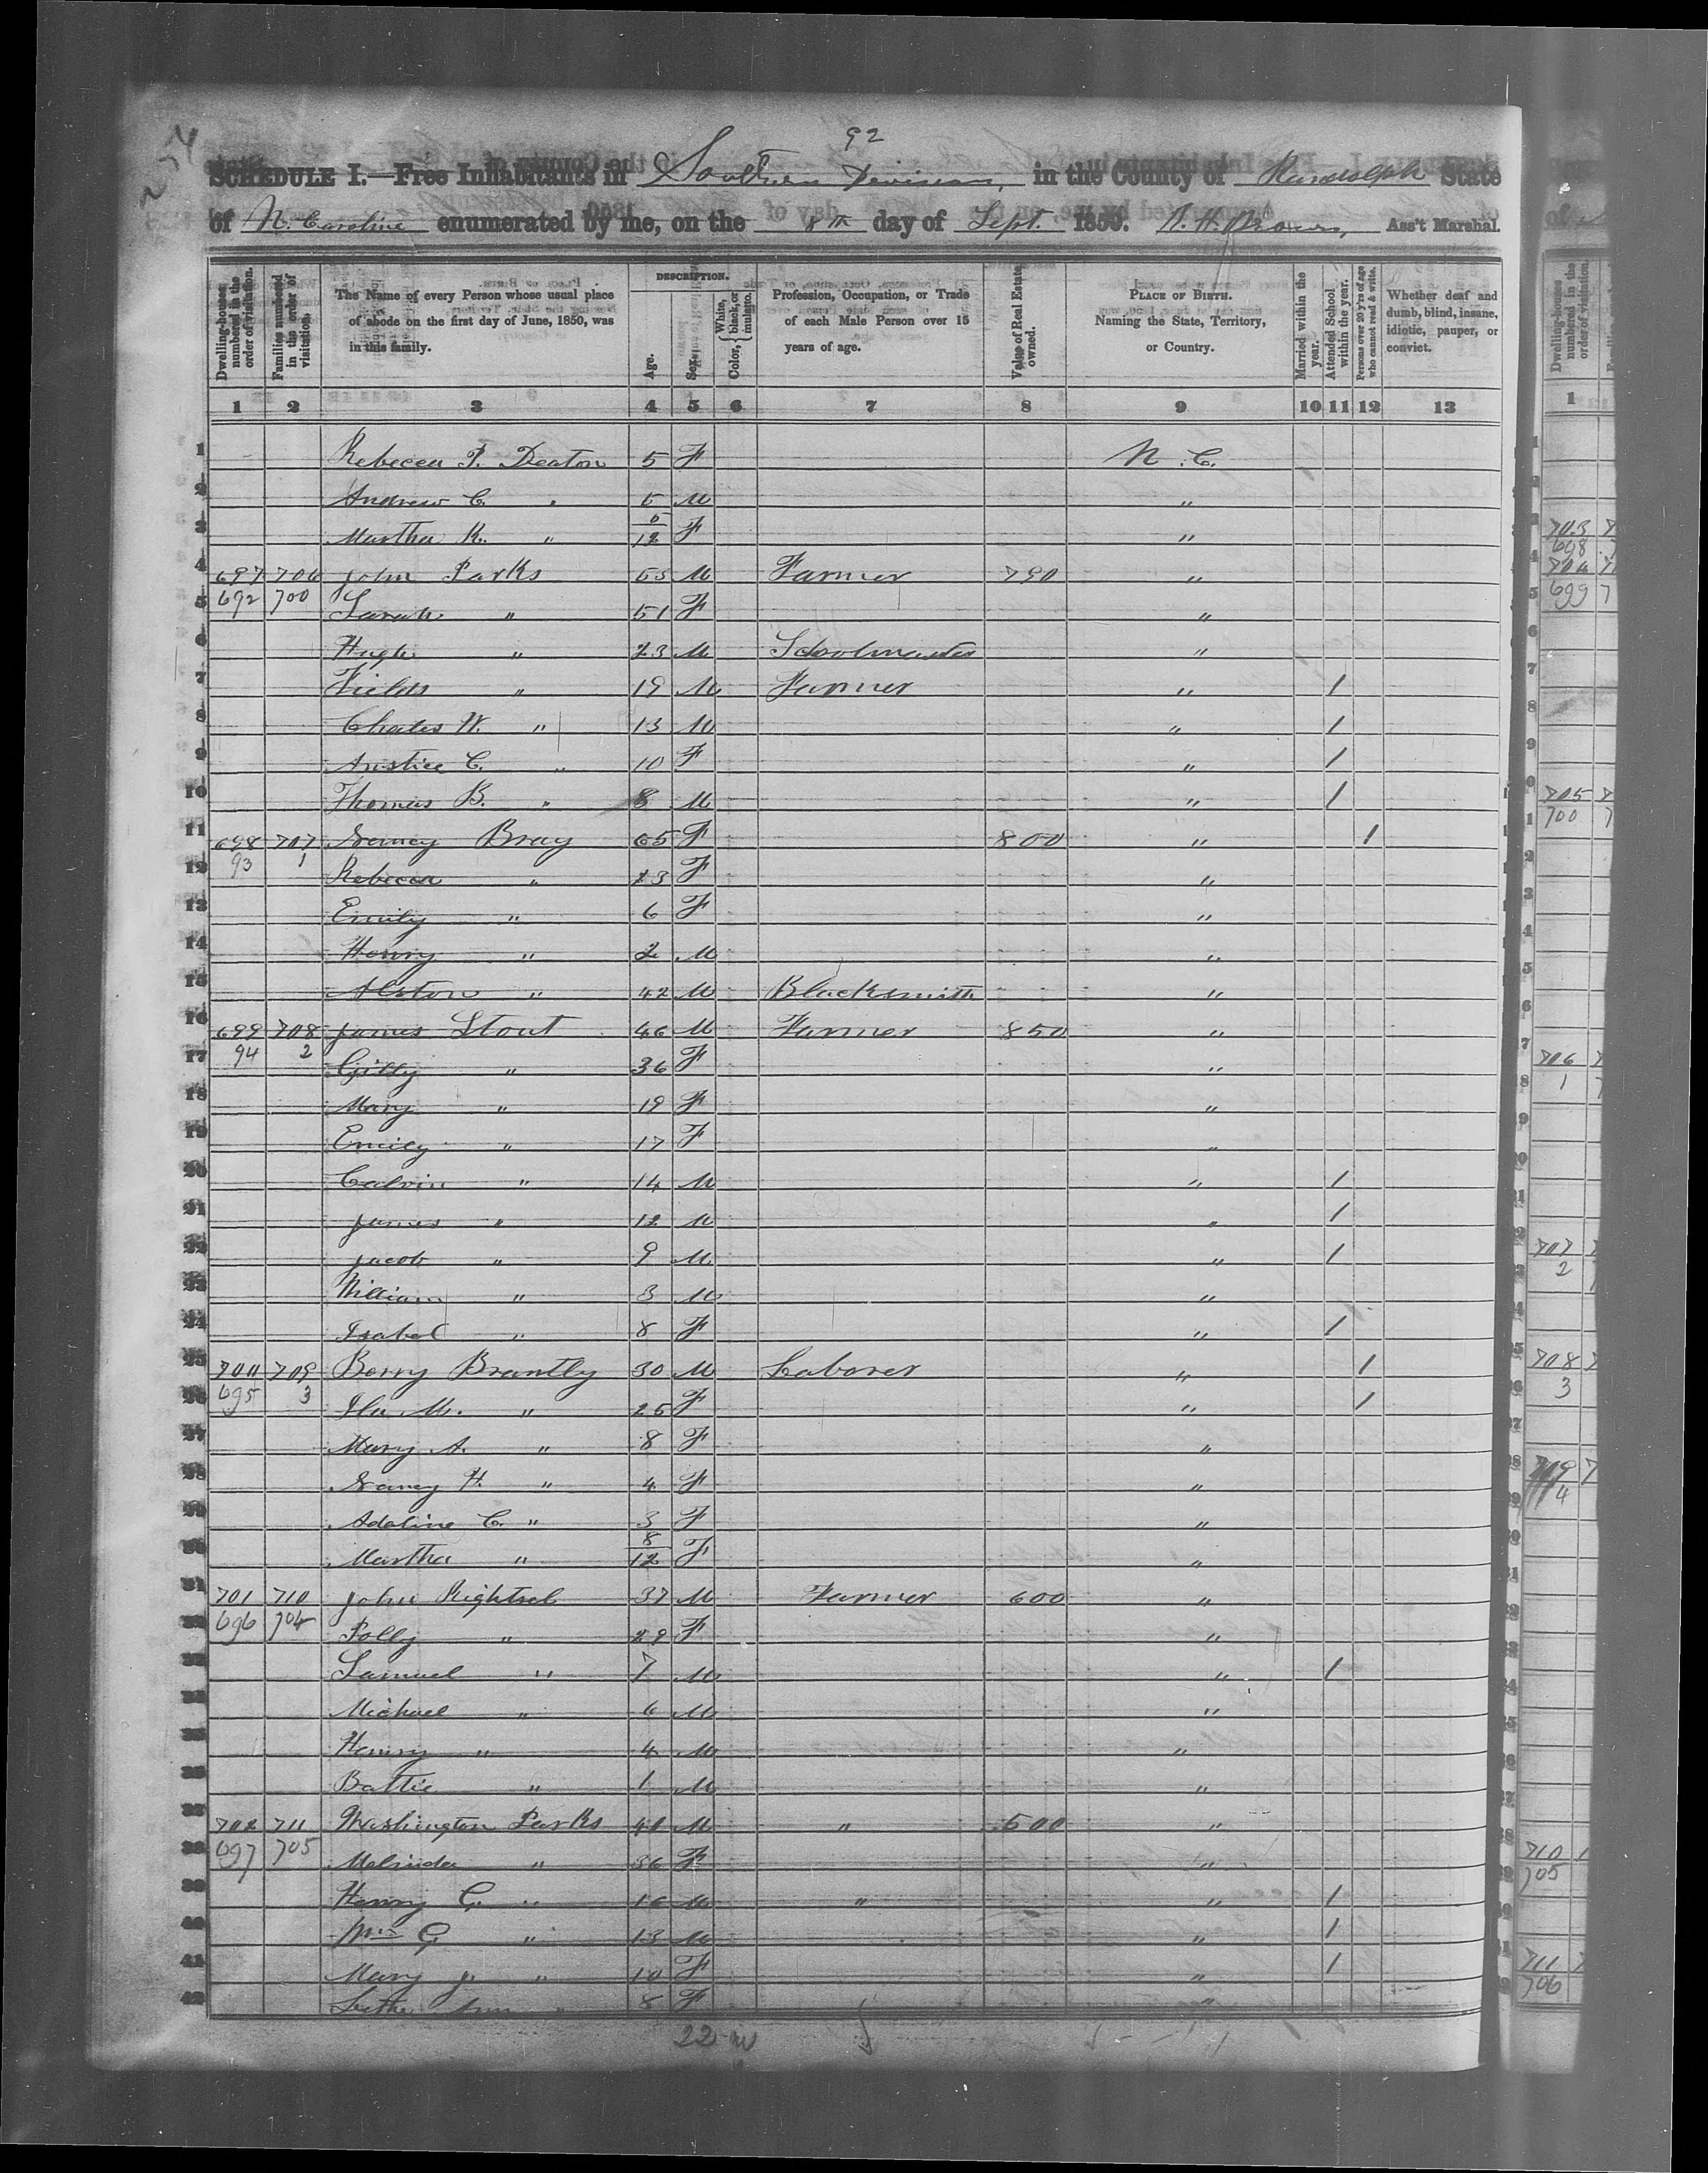 254
92
SCHEDULE I.—Free Inhabitants in Southern Division, in the County of Randolph State
of N. Caroline enumerated by me, on the 8th day of Sept. 1850. Ass't Marshal.
Dwelling-houses numbered in the order of visitation.
Families numbered in the order of visitation.
The Name of every Person whose usual place of abode on the first day of June, 1850, was in this family.
DESCRIPTION.
Age.
Sex.
Color, { White, black, or mulatto.
Profession, Occupation, or Trade of each Male Person over 15 years of age.
Value of Real Estate owned.
PLACE OF BIRTH. Naming the State, Territory, or Country.
Married within the year.
Attended School within the year.
Persons over 20 y'rs of age who cannot read & write.
Whether deaf and dumb, blind, insane, idiotic, pauper, or convict.
1 2 3 4 5 6 7 8 9 10 11 12 13
1 Rebecca P. Deaton 5 F N. C.
2 Andrew C. " M "
3 Martha R. " 12 F "
4 697 706 John Parks M Farmer 790 "
5 692 700 Sarah " 51 F "
6 Hugh " 23 M Schoolmaster "
7 Fields " 19 M Farmer " /
8 Charles W. " 13 M " /
9 C. " 10 F " /
10 Thomas B. " 8 M " /
11 698 707 Nancy Bray 65 F 800 " /
12 93 1 Rebecca " 23 F "
13 Emily " 6 F "
14 Henry " 2 M "
15 Alston " 42 M Blacksmith "
16 699 708 James Stout 46 M Farmer 850 "
17 94 2 " 36 F "
18 Mary " 19 F "
19 Emily " 17 F "
20 Calvin " 14 M " /
21 James " 12 M " /
22 Jacob " 9 M " /
23 William " 3 M "
24 Isabel " 8 F " /
25 700 709 Berry Brantly 30 M Laborer " /
26 695 3 M. " F " /
27 Mary A. " 8 F "
28 Nancy H. " 4 F "
29 Adaline C. " 3 F "
30 Martha " 8/12 F "
31 701 710 John Rightsel 37 M Farmer 600 "
32 696 704 Polly " 29 F "
33 Samuel " 7 M " /
34 Michael " 6 M "
35 Henry " 4 M "
36 " 1 M "
37 702 711 Washington Parks M " 500 "
38 697 705 Melinda " 36 F "
39 Henry G. " 16 M " " /
40 Wm G " 13 M " /
41 Mary J. " 10 F " /
42 Ann " 8 F "
22 m
Dwelling-houses numbered in the order of visitation.
1
703
698
704
699
705
700
706
1
707
2
708
3
709
4
710
705
711
706